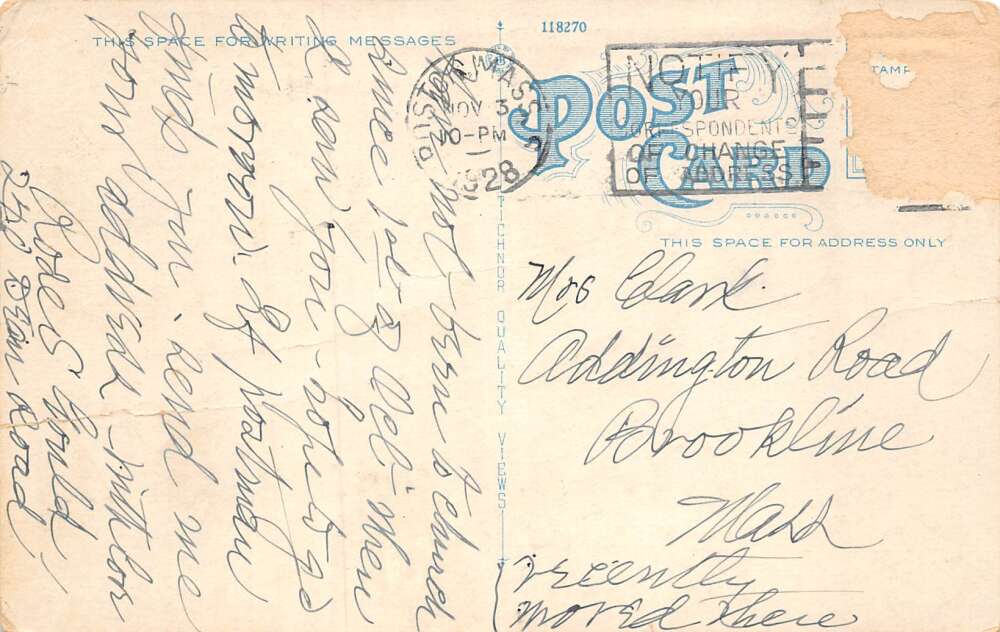 THIS SPACE FOR WRITING MESSAGES
118270
POST CARD
BOSTON MASS.
NOV 3
10-PM
1928
NOTIFY
YOUR
CORRESPONDENTS
OF CHANGE
OF ADDRESS
STAMP
THIS SPACE FOR ADDRESS ONLY
TICHNOR QUALITY VIEWS
Have not been to church
since 1st of Oct. when
I saw you - hope to go
tomorrow. If postman
finds you - send me
your address - with love
Rose S. Gould
220 Dean Road
Mrs Clark
Addington Road
Brookline
Mass
recently
moved there